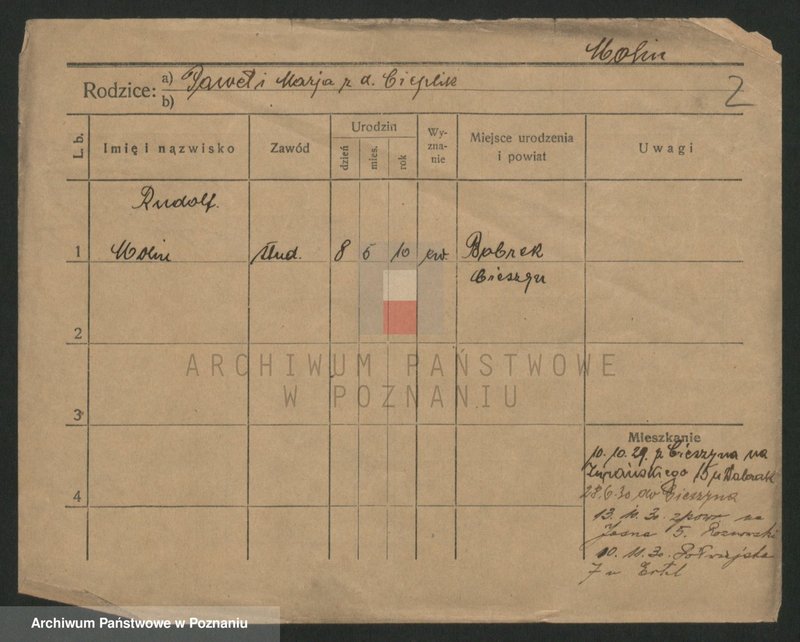 Molin
Rodzice: a) Paweł i Marja z d. Cieplik
b)
2
L. b.
Imię i nazwisko
Zawód
Urodzin
dzień
mies.
rok
Wy-
zna-
nie
Miejsce urodzenia
i powiat
Uwagi
Rudolf
1 Molin stud. 8 5 10 ew. Bobrek
Cieszyn
2
ARCHIWUM PAŃSTWOWE
W POZNANIU
3
Mieszkanie
10.10.29 z Cieszyna na
15 u
4
28.6.30 do Cieszyna
13.10.30 na
Jasna 5.
10.11.30.
7 u Ertel
Archiwum Państwowe w Poznaniu